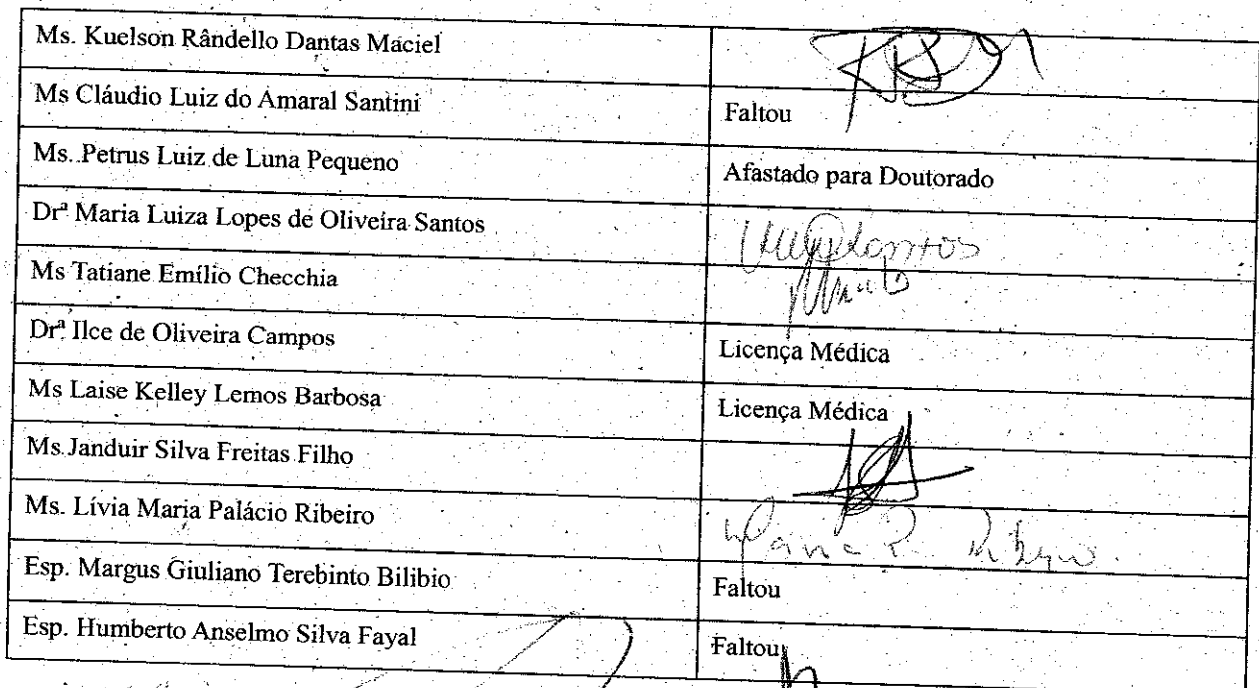 Ms. Kuelson Rândello Dantas Maciel
Ms Cláudio Luiz do Amaral Santini
Faltou
Ms. Petrus Luiz de Luna Pequeno
Afastado para Doutorado
Drª Maria Luiza Lopes de Oliveira Santos
Ms Tatiane Emílio Checchia
Drª Ilce de Oliveira Campos
Licença Médica
Ms Laise Kelley Lemos Barbosa
Licença Médica
Ms. Janduir Silva Freitas Filho
Ms. Lívia Maria Palácio Ribeiro
Esp. Margus Giuliano Terebinto Bilibio
Faltou
Esp. Humberto Anselmo Silva Fayal
Faltou